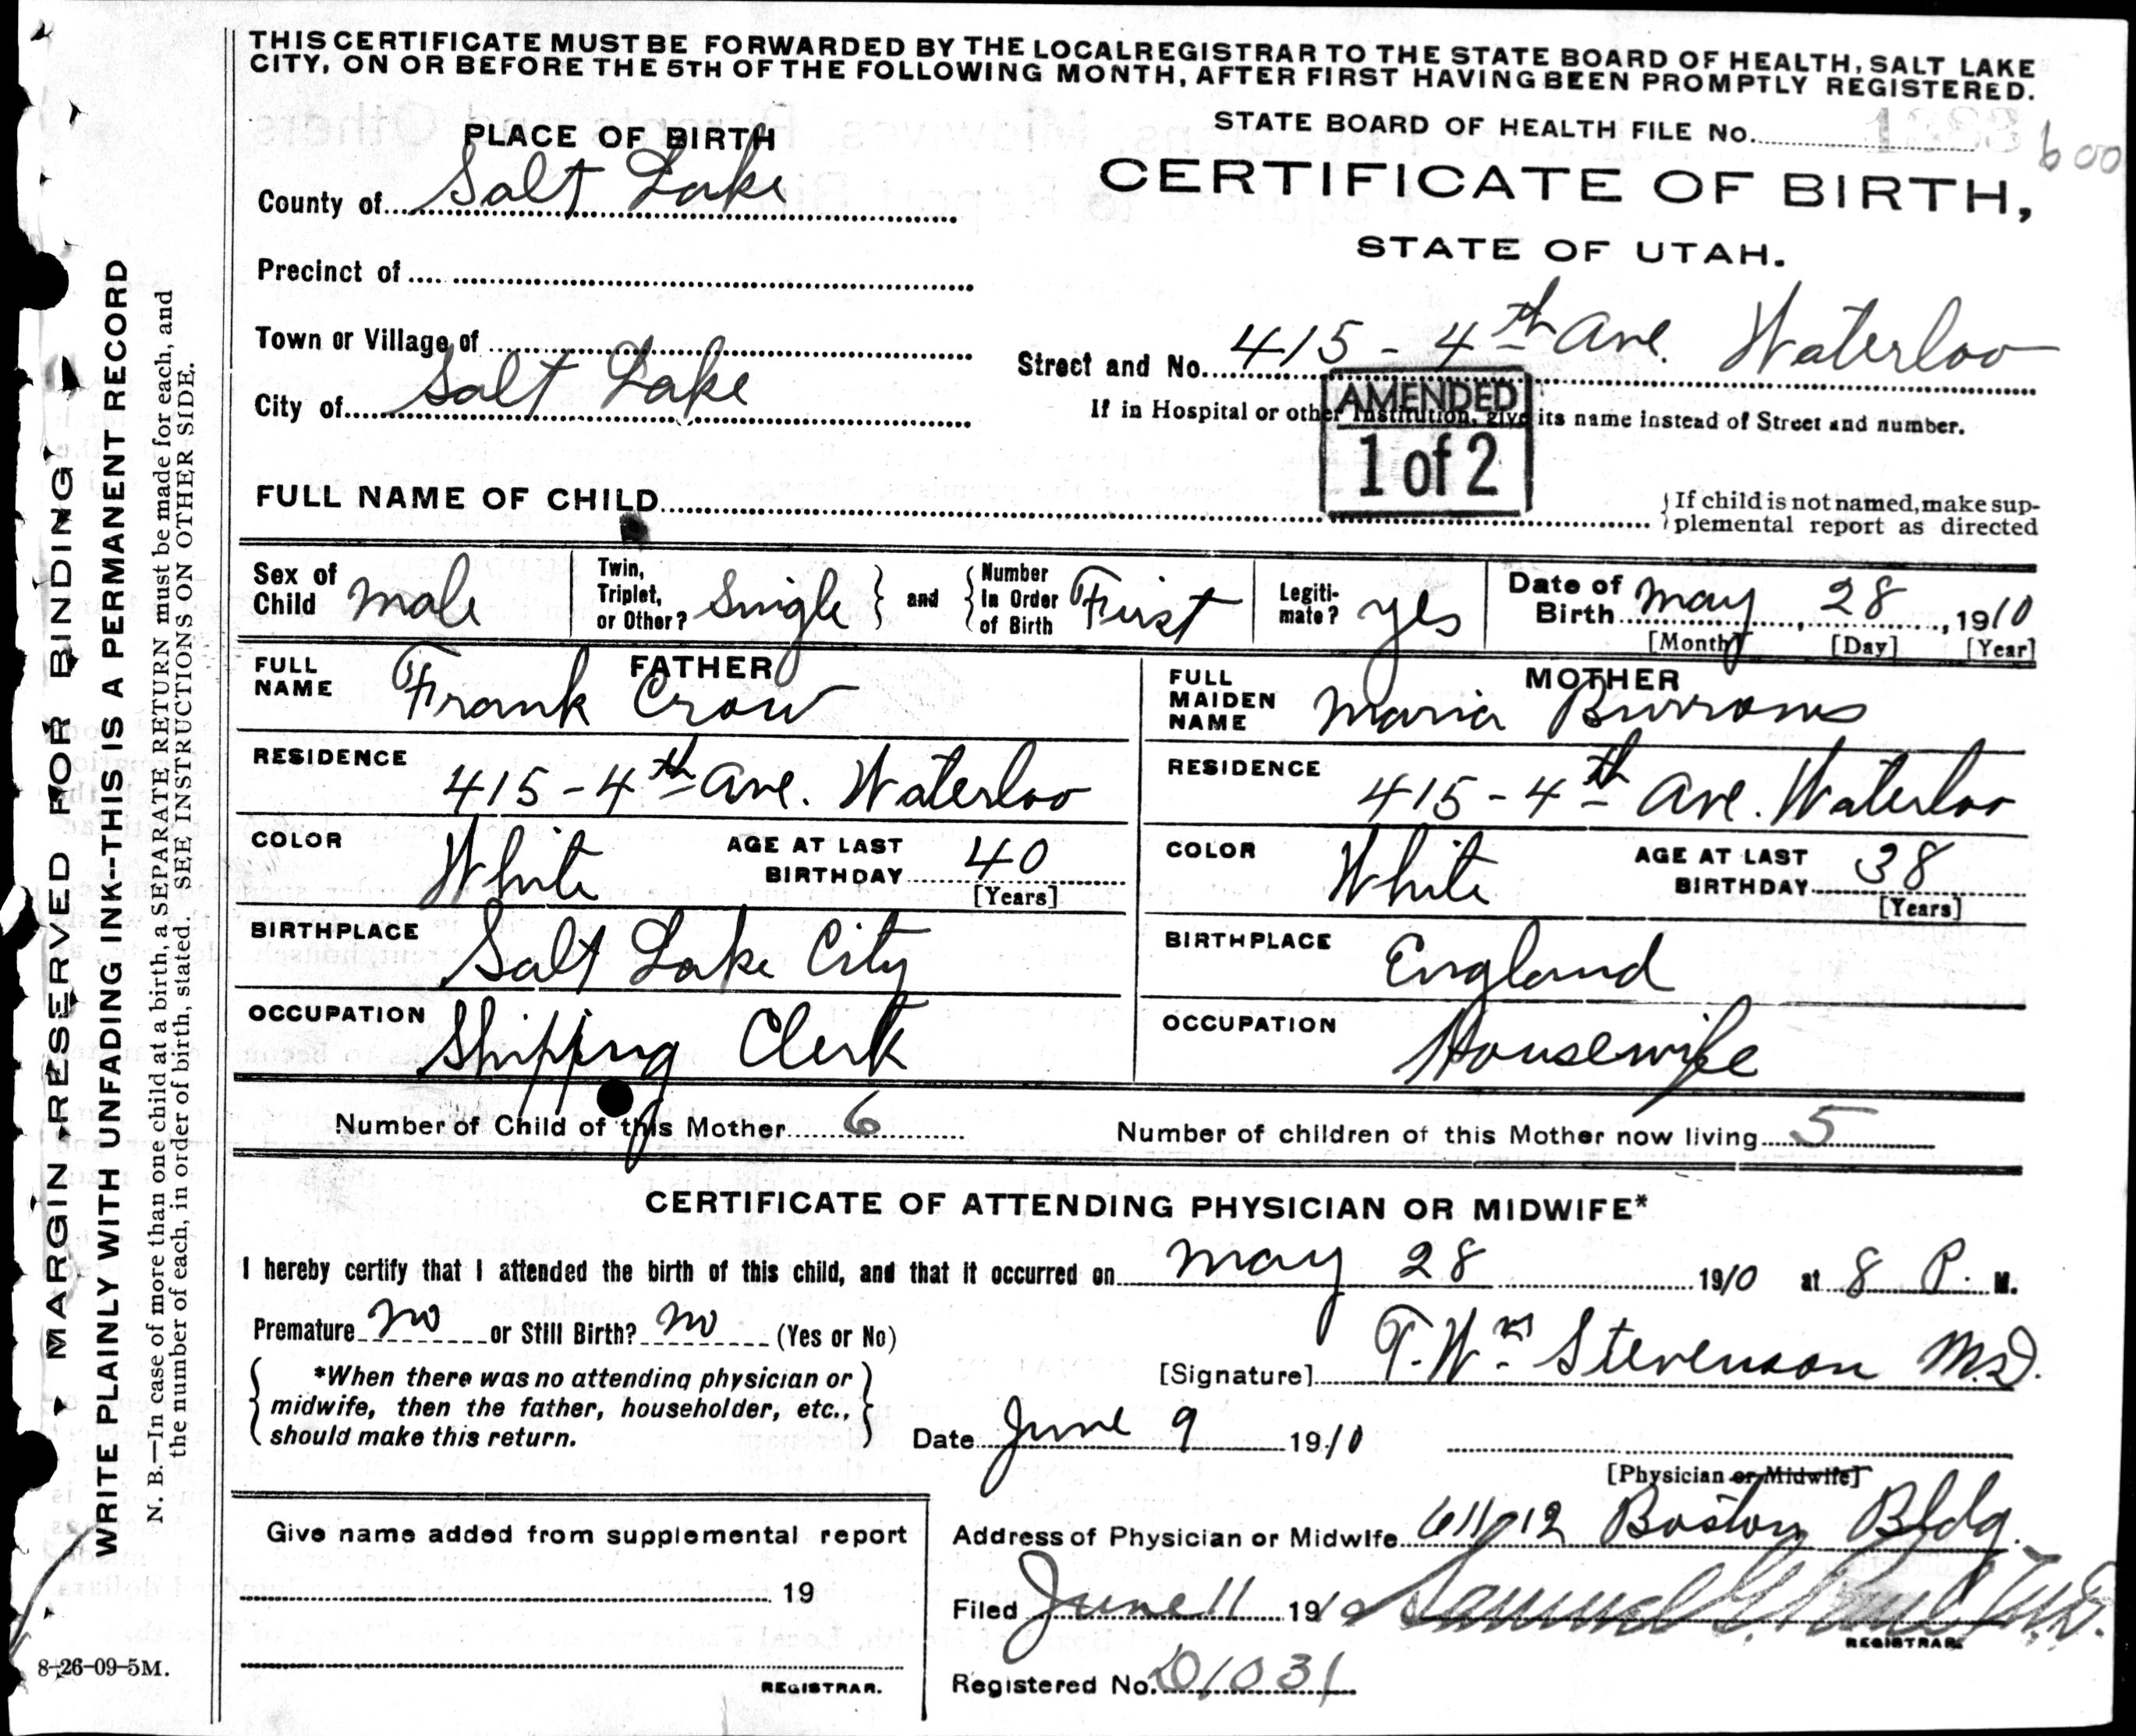 THIS CERTIFICATE MUST BE FORWARDED BY THE LOCAL REGISTRAR TO THE STATE BOARD OF HEALTH, SALT LAKE
CITY, ON OR BEFORE THE 5TH OF THE FOLLOWING MONTH, AFTER FIRST HAVING BEEN PROMPTLY REGISTERED.
STATE BOARD OF HEALTH FILE No.
600
CERTIFICATE OF BIRTH,
STATE OF UTAH.
PLACE OF BIRTH
County of Salt Lake
Precinct of
Town or Village of
City of Salt Lake
Street and No. 415 - 4th Ave. Waterloo
If in Hospital or other Institution, give its name instead of Street and number.
AMENDED
1 of 2
FULL NAME OF CHILD
{If child is not named, make sup-
plemental report as directed
Sex of Child Male
Twin, Triplet, or Other? Single } and { Number In Order of Birth First
Legiti-mate? yes
Date of Birth May 28, 1910
[Month] [Day] [Year]
FATHER
FULL NAME Frank Crow
RESIDENCE 415 - 4th Ave. Waterloo
COLOR White AGE AT LAST BIRTHDAY 40
[Years]
BIRTHPLACE Salt Lake City
OCCUPATION Shipping Clerk
MOTHER
FULL MAIDEN NAME Maria Burrows
RESIDENCE 415 - 4th Ave. Waterloo
COLOR White AGE AT LAST BIRTHDAY 38
[Years]
BIRTHPLACE England
OCCUPATION Housewife
Number of Child of this Mother 6 Number of children of this Mother now living 5
CERTIFICATE OF ATTENDING PHYSICIAN OR MIDWIFE*
I hereby certify that I attended the birth of this child, and that it occurred on May 28 1910 at 8 P. M.
Premature no or Still Birth? no (Yes or No)
{ *When there was no attending physician or
midwife, then the father, householder, etc.,
should make this return. }
[Signature] T. Wm Stevenson M.D.
Date June 9 1910
[Physician or Midwife]
Address of Physician or Midwife 611/12 Boston Bldg.
Filed June 11 1910 Samuel G. Paul M.D.
REGISTRAR
Registered No. D1031
Give name added from supplemental report
19
REGISTRAR.
MARGIN RESERVED FOR BINDING
WRITE PLAINLY WITH UNFADING INK--THIS IS A PERMANENT RECORD
N. B.—In case of more than one child at a birth, a SEPARATE RETURN must be made for each, and
the number of each, in order of birth, stated. SEE INSTRUCTIONS ON OTHER SIDE.
8-26-09-5M.